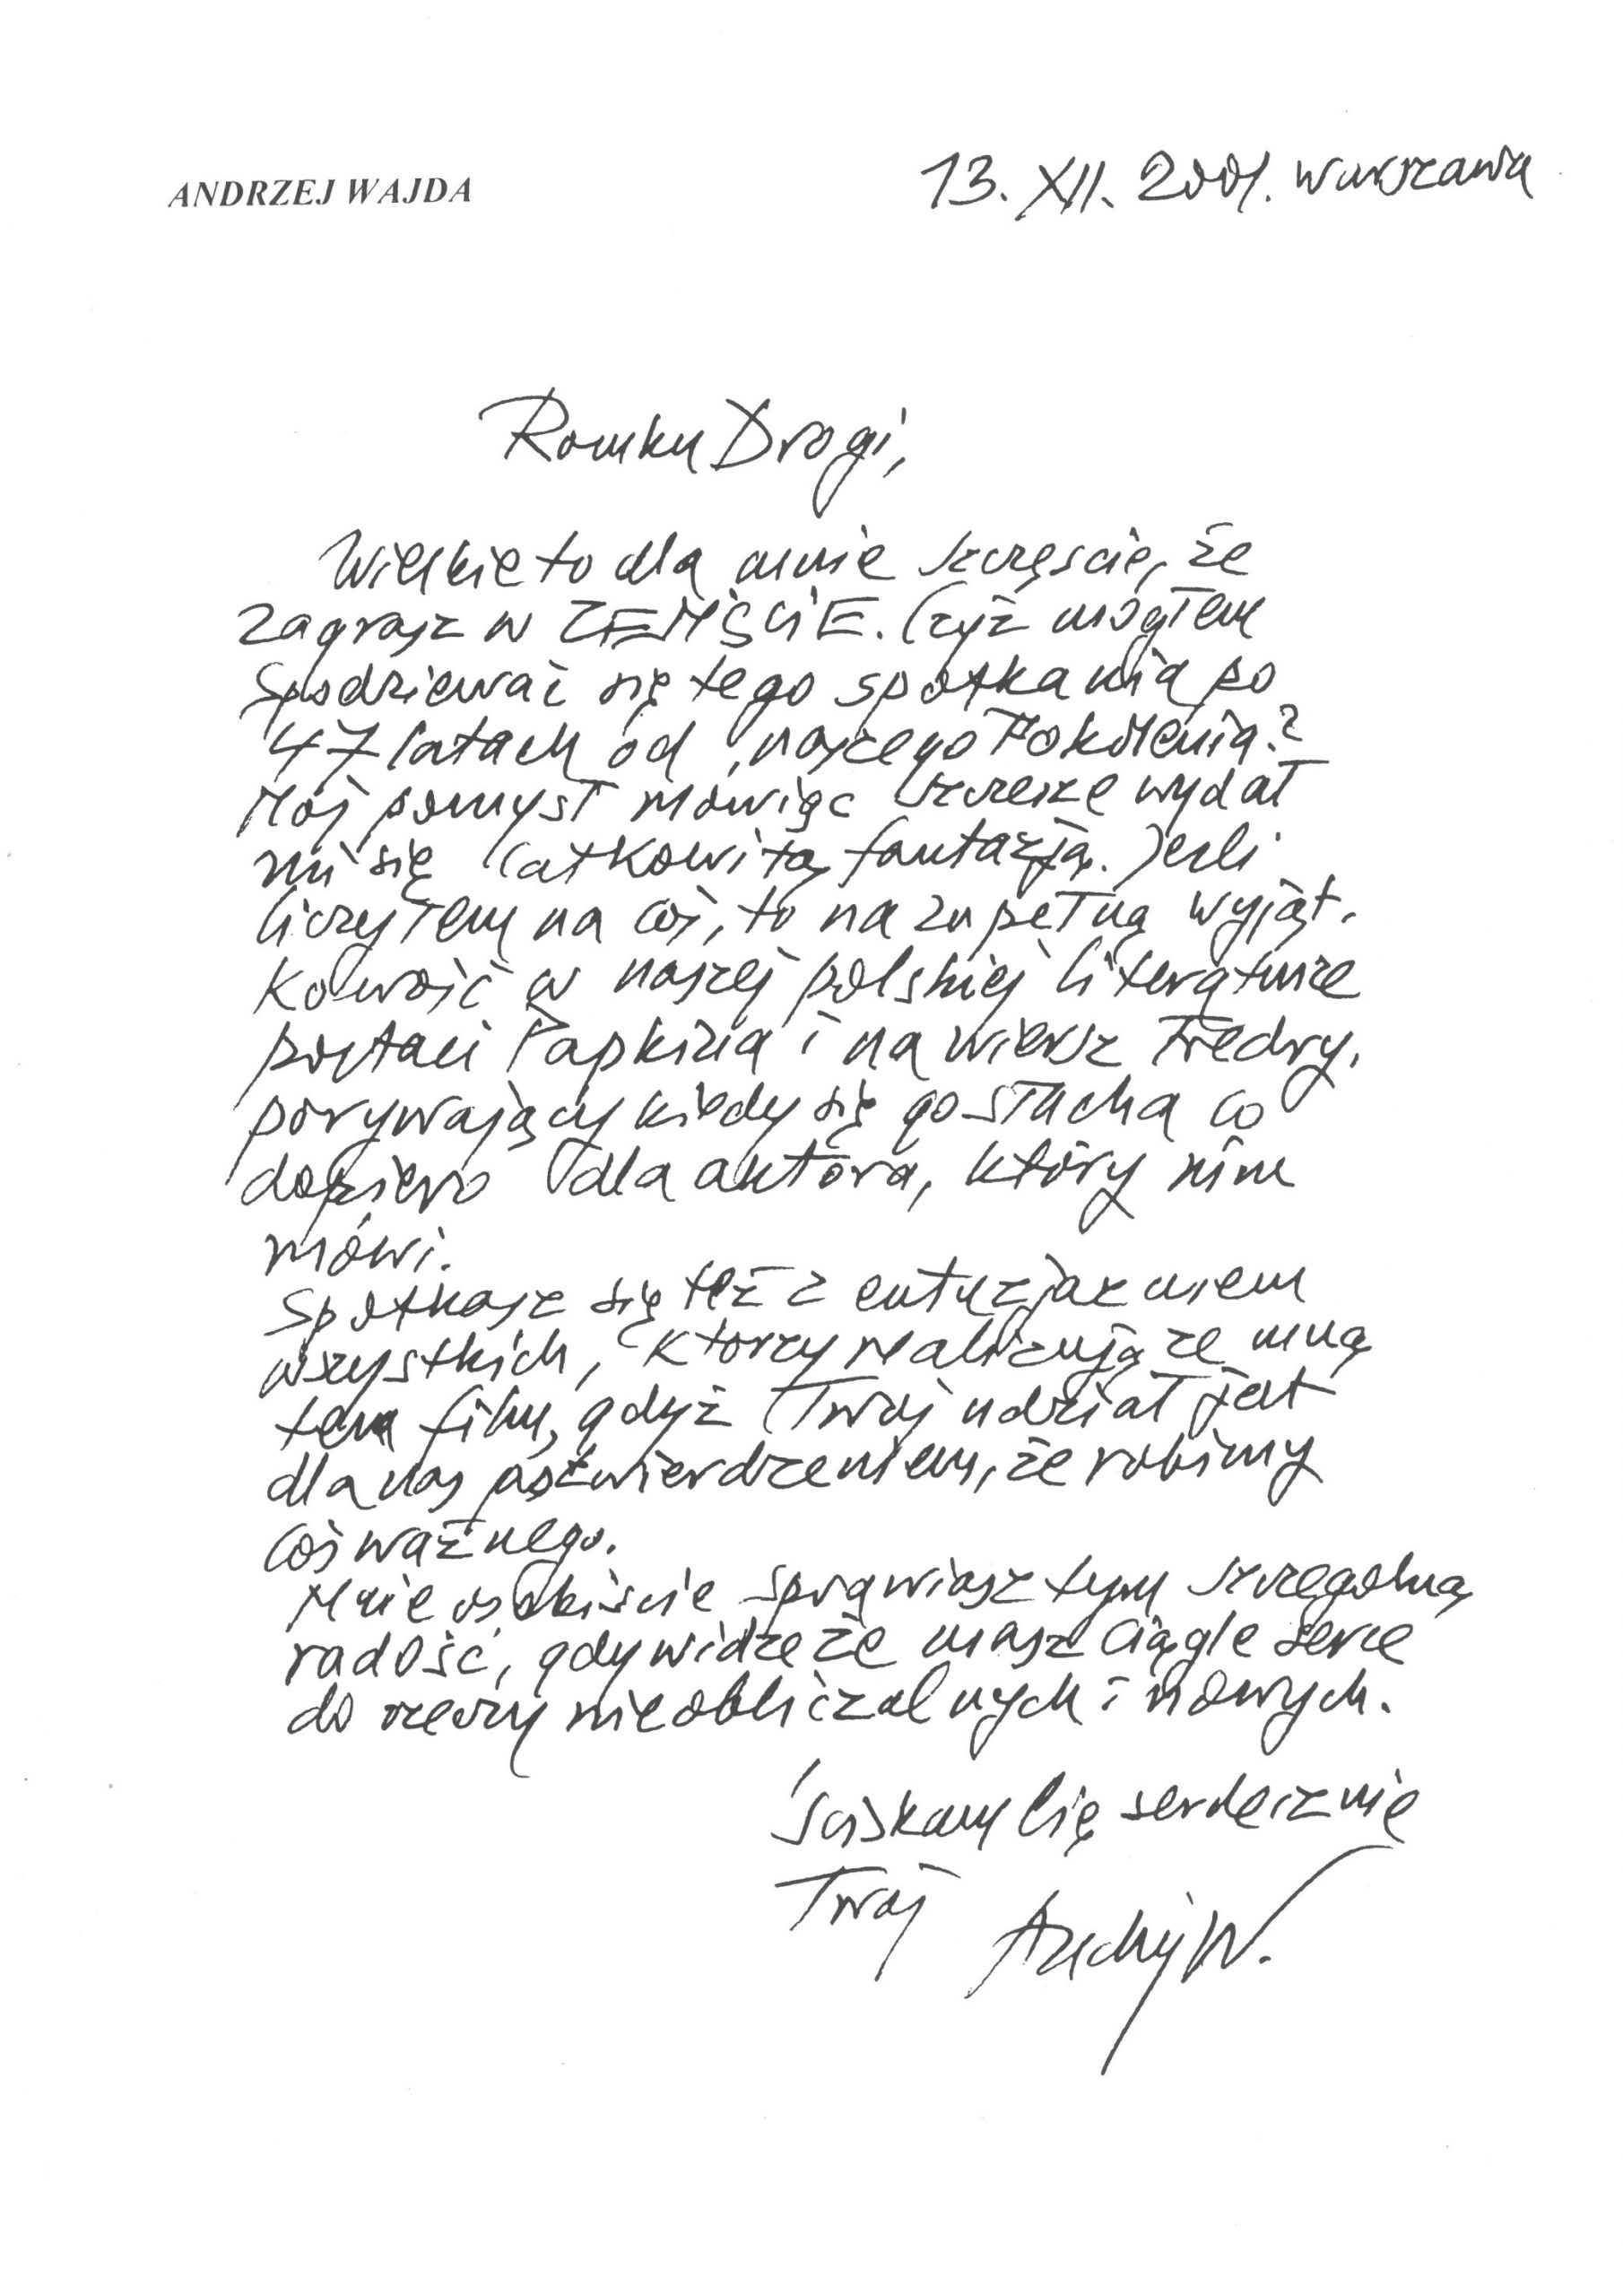 ANDRZEJ WAJDA
13. XII. 2001. Warszawa
Romku Drogi,
Wielkie to dla mnie szczęście, że
zagrasz w ZEMŚCIE. Czyż mogłem
spodziewać się tego spotkania po
47 latach od „naszego Pokolenia?
Mój pomysł mówiąc szczerze wydał
mi się całkowitą fantazją. Jeśli
liczyłem na coś, to na zupełną wyjąt-
kowość w naszej polskiej literaturze
postaci Papkina i na wiersz Fredry,
porywający kiedy się go słucha co
dopiero dla aktora, który nim
mówi.
Spotkasz się też z entuzjazmem
wszystkich, którzy realizują ze mną
ten film, gdyż Twój udział jest
dla nas potwierdzeniem, że robimy
coś ważnego.
Mnie osobiście sprawiasz tym szczególną
radość, gdy widzę że masz ciągle serce
do rzeczy nieobliczalnych i nowych.
Ściskam Cię serdecznie
Twój
Andrzej W.